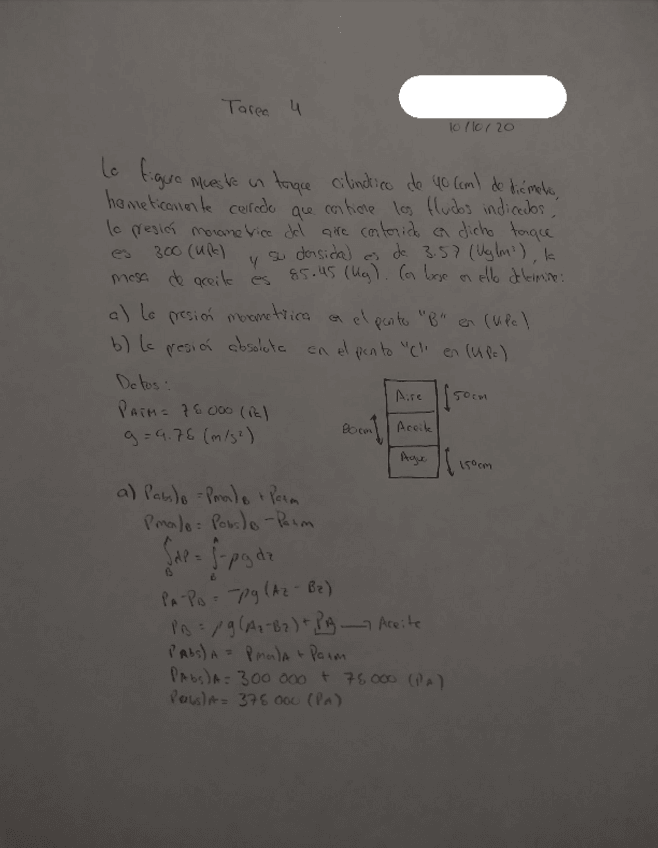 Tarea 4
10/10/20
La figura muestra un tanque cilíndrico de 40 (cm) de diámetro,
herméticamente cerrado que contiene los fluidos indicados,
la presión manométrica del aire contenido en dicho tanque
es 300 (kPa) y su densidad es de 3.57 (kg/m³), la
masa de aceite es 85.45 (kg). Con base en ello determine:
a) La presión manométrica en el punto "B" en (kPa)
b) La presión absoluta en el punto "C" en (kPa)
Datos:
PATM = 78 000 (Pa)
g = 9.78 (m/s²)
Aire
50cm
80cm
Aceite
Agua
150cm
a) Pabs)B = Pman)B + Patm
Pman)B = Pabs)B - Patm
∫ dP = ∫ -ρg dz
B A B A
PA - PB = -ρg (Az - Bz)
PB = ρg (Az - Bz) + PA → Aceite
PAbs)A = Pman)A + Patm
PAbs)A = 300 000 + 78 000 (PA)
Pabs)A = 378 000 (PA)